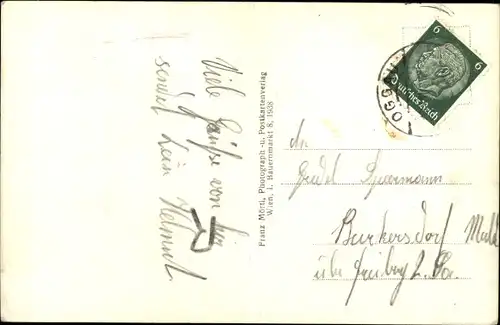 Viele Grüße von hier
sendet Dein Helmut
Franz Mörtl, Photograph- u. Postkartenverlag
Wien, I. Bauernmarkt 8, 1938
6 6
Deutsches Reich
OGGAU
An
Gretel
Burkersdorf
über Freiberg i. Sa.